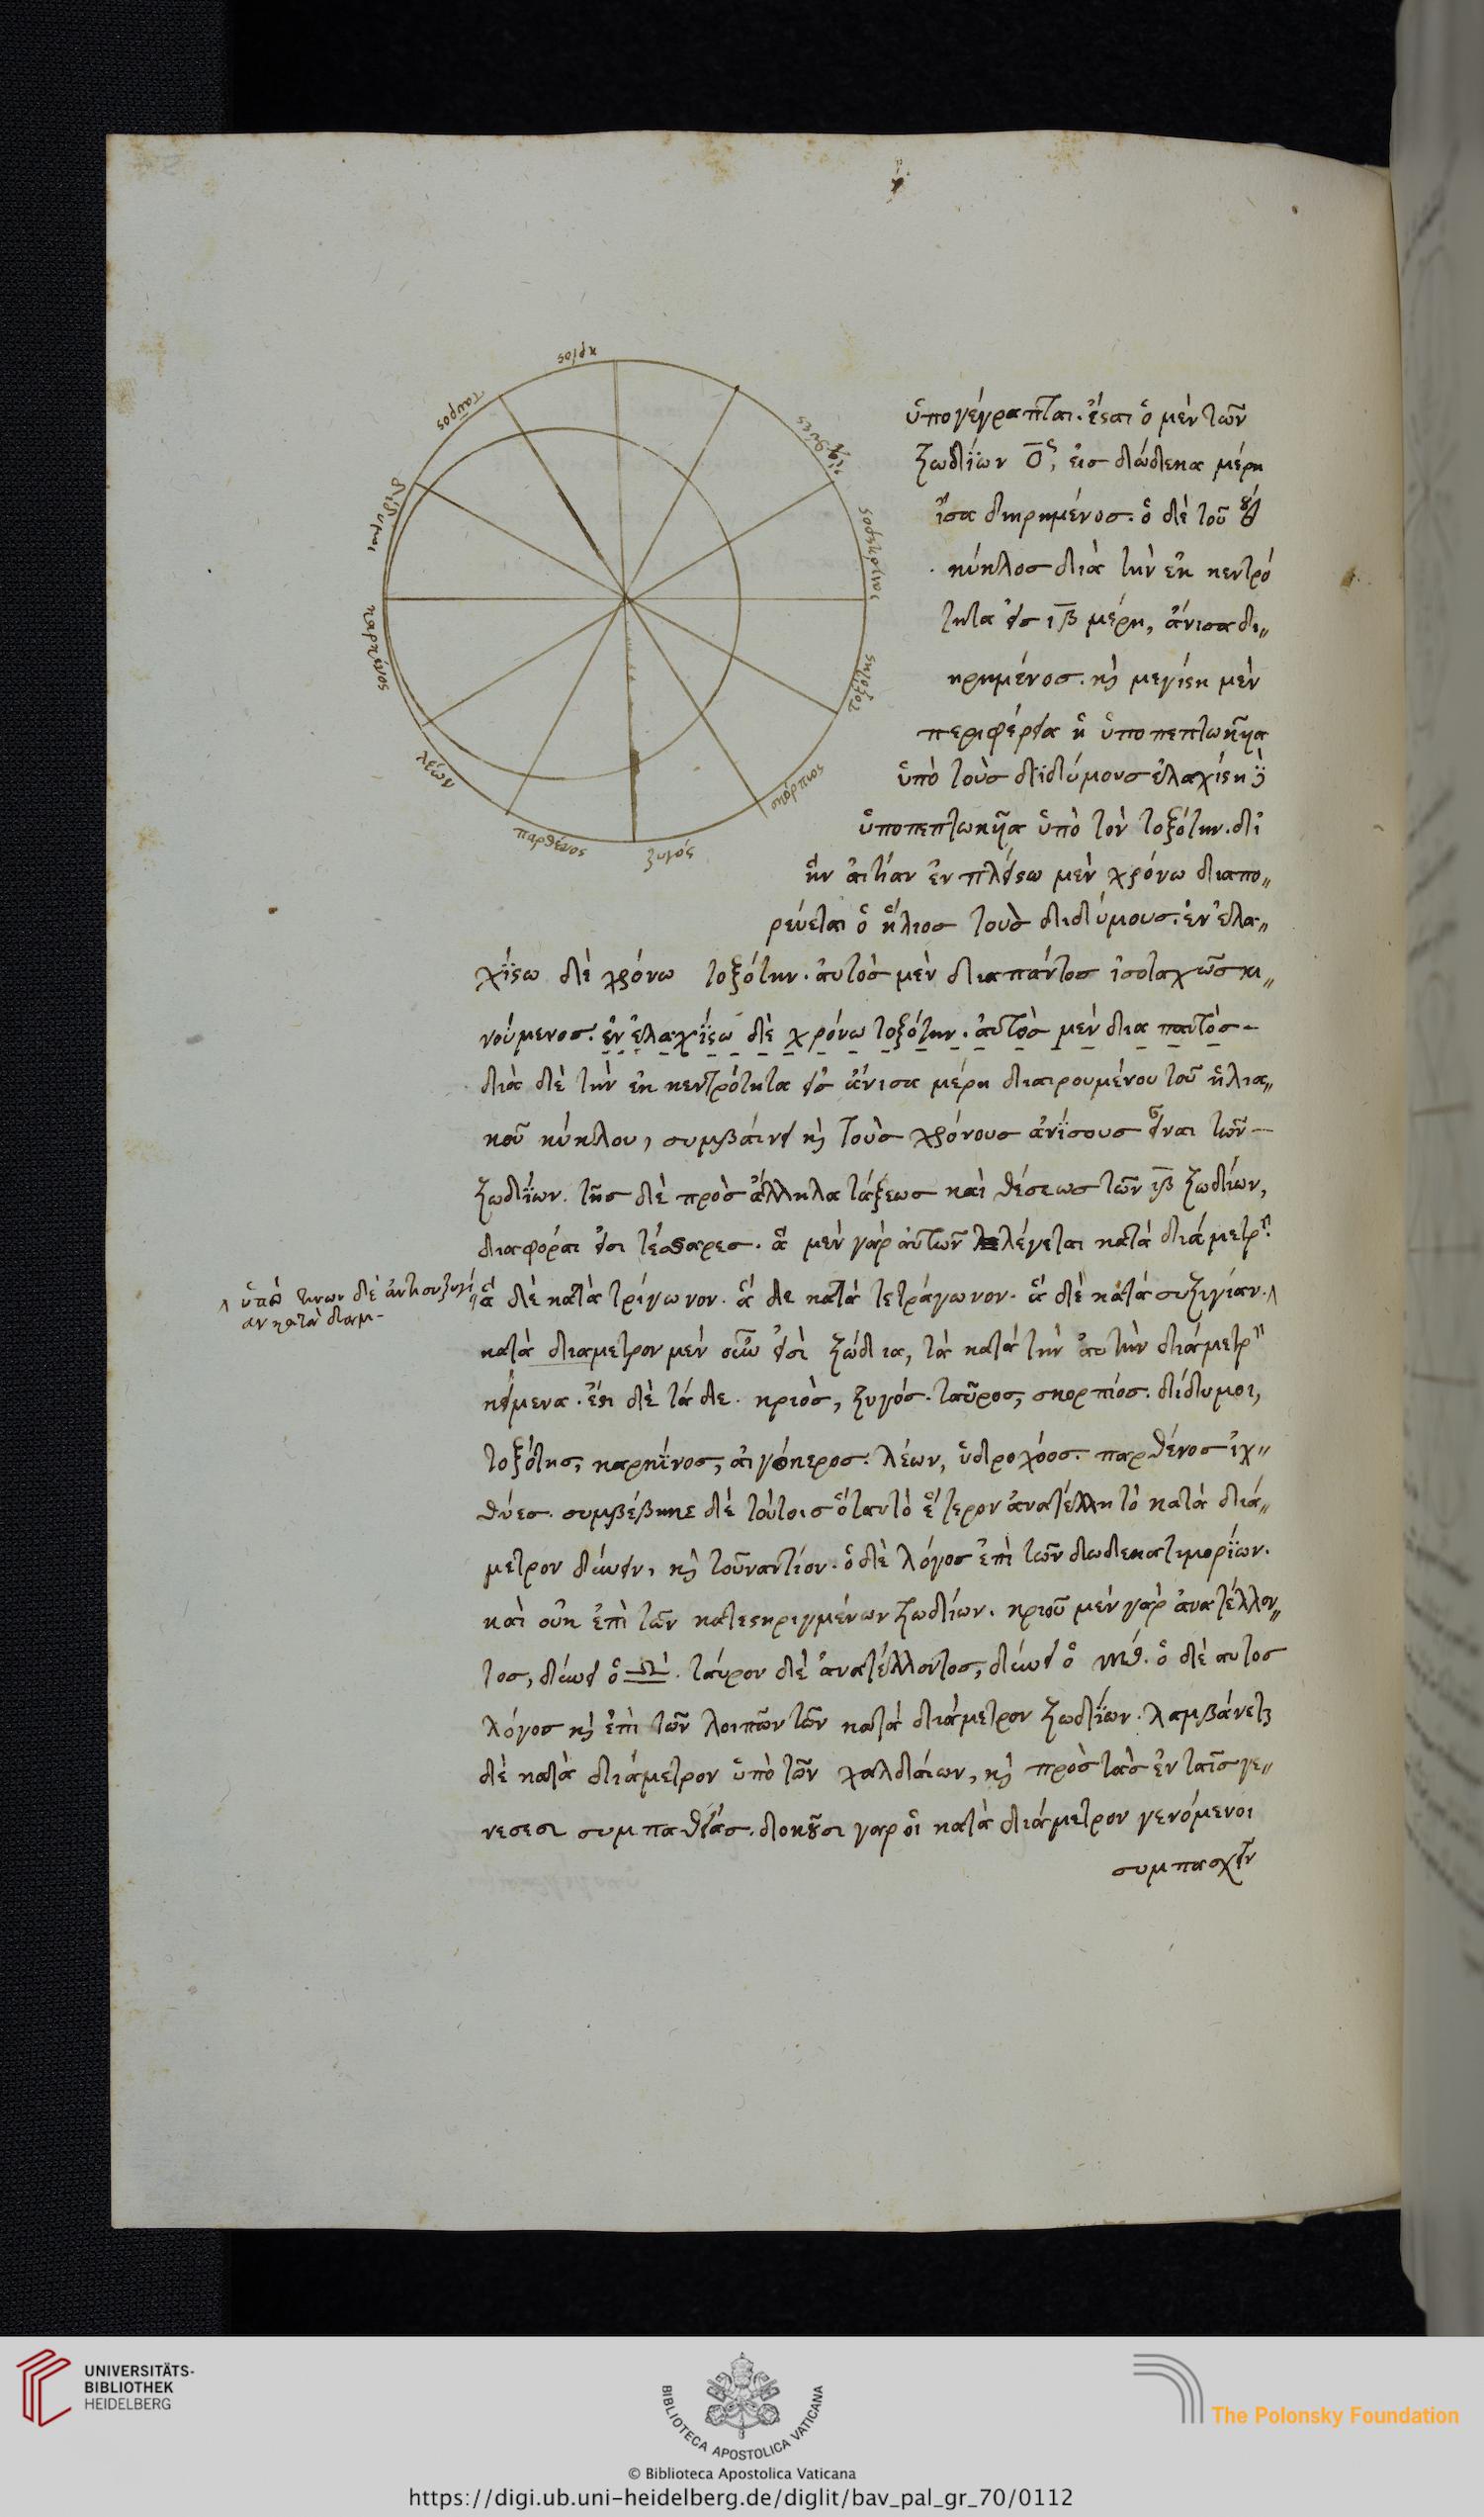 κριος
ταῦρος
δίδυμοι
καρκίνος
λέων
παρθένος
ζυγός
σκορπίος
τοξότης
αἰγόκερος
ἰχθύες
ὑπογέγραπται. ἔσται ὁ μὲν τῶν
ζωδίων , εἰσ δώδεκα μέρη
ἴσα διηρημένοσ. ὁ δὲ τοῦ
κύκλοσ διὰ τὴν ἐκκεντρό
τητα εἰσ ιβ μέρη, ἄνισα δι„
ηρημένοσ. καὶ μεγίστη μὲν
περιφέρεια ἡ ὑποπεπτωκυῖα
ὑπὸ τοὺσ διδύμουσ ἐλαχίστη δὲ
ὑποπεπτωκυῖα ὑπὸ τὸν τοξότην. δι
ἣν αἰτίαν ἐν πλείστω μὲν χρόνω διαπο„
ρεύεται ὁ ἥλιοσ τοὺσ διδύμουσ. ἐν ἐλα„
χίστω δὲ χρόνω τοξότην. αὐτὸσ μὲν διαπάντοσ ἰσοταχῶσ κι„
νούμενοσ. ἐν ἐλαχίστω δὲ χρόνω τοξότην. αὐτὸσ μὲν δια παντὸσ –
διὰ δὲ τὴν ἐκκεντρότητα εἰσ ἄνισα μέρη διαιρουμένου τοῦ ἡλια„
κοῦ κύκλου, συμβάινει καὶ τοὺσ χρόνουσ ἀνίσουσ εἶναι τῶν –
ζωδίων. τῆσ δὲ πρὸσ ἄλληλα τάξεωσ καὶ θέσεωσ τῶν ιβ ζωδίων,
διαφοραι εἰσι τέσσαρεσ. ἃ μὲν γὰρ ἀυτῶν λέγεται κατά διάμετρον.
ἃ δὲ κατὰ τρίγωνον. ἃ δε κατὰ τετράγωνον. ἃ δὲ κατά συζιγίαν. ˄
˄ ὑπὸ τινων δὲ ἀντισυζυγί„
αν κατὰ διαμ–
κατὰ διαμετρον μὲν οὖν εἰσὶ ζώδια, τὰ κατά τὴν ἀυτὴν διάμετρον
κείμενα. ἔστι δὲ τά δε. κριὸσ, ζυγόσ. ταῦροσ, σκορπίοσ. δίδυμοι,
τοξότησ, καρκίνοσ, ἀιγόκεροσ. λέων, ὑδροχόοσ. παρθένοσ ἰχ„
θύεσ. συμβέβηκε δὲ τούτοισ ὅταν τὸ ἕτερον ἀνατέλλη τὸ κατὰ διά„
μετρον δύνειν, καὶ τοὐναντίον. ὁ δὲ λόγοσ ἐπὶ τῶν δωδεκατιμορίων.
καὶ οὐκ ἐπὶ τῶν κατεστηριγμένων ζωδίων. κριοῦ μὲν γὰρ ἀνατέλλον„
τοσ, δύνει ὁ ♎. ταύρου δὲ ἀνατέλλοντοσ, δύνει ὁ ♏. ὁ δὲ αυτοσ
λόγοσ καὶ ἐπὶ τῶν λοιπῶν τῶν κατά διάμετρον ζωδίων. λαμβάνεται
δὲ κατὰ διάμετρον ὑπὸ τῶν χαλδαίων, καὶ πρὸσ τὰσ ἐν ταῖσ γε„
νεσεσι συμπαθείασ. δοκοῦσι γαρ οἱ κατὰ διάμετρον γενόμενοι
συμπασχειν
UNIVERSITÄTS-
BIBLIOTHEK
HEIDELBERG
BIBLIOTECA APOSTOLICA VATICANA
The Polonsky Foundation
© Biblioteca Apostolica Vaticana
https://digi.ub.uni-heidelberg.de/diglit/bav_pal_gr_70/0112